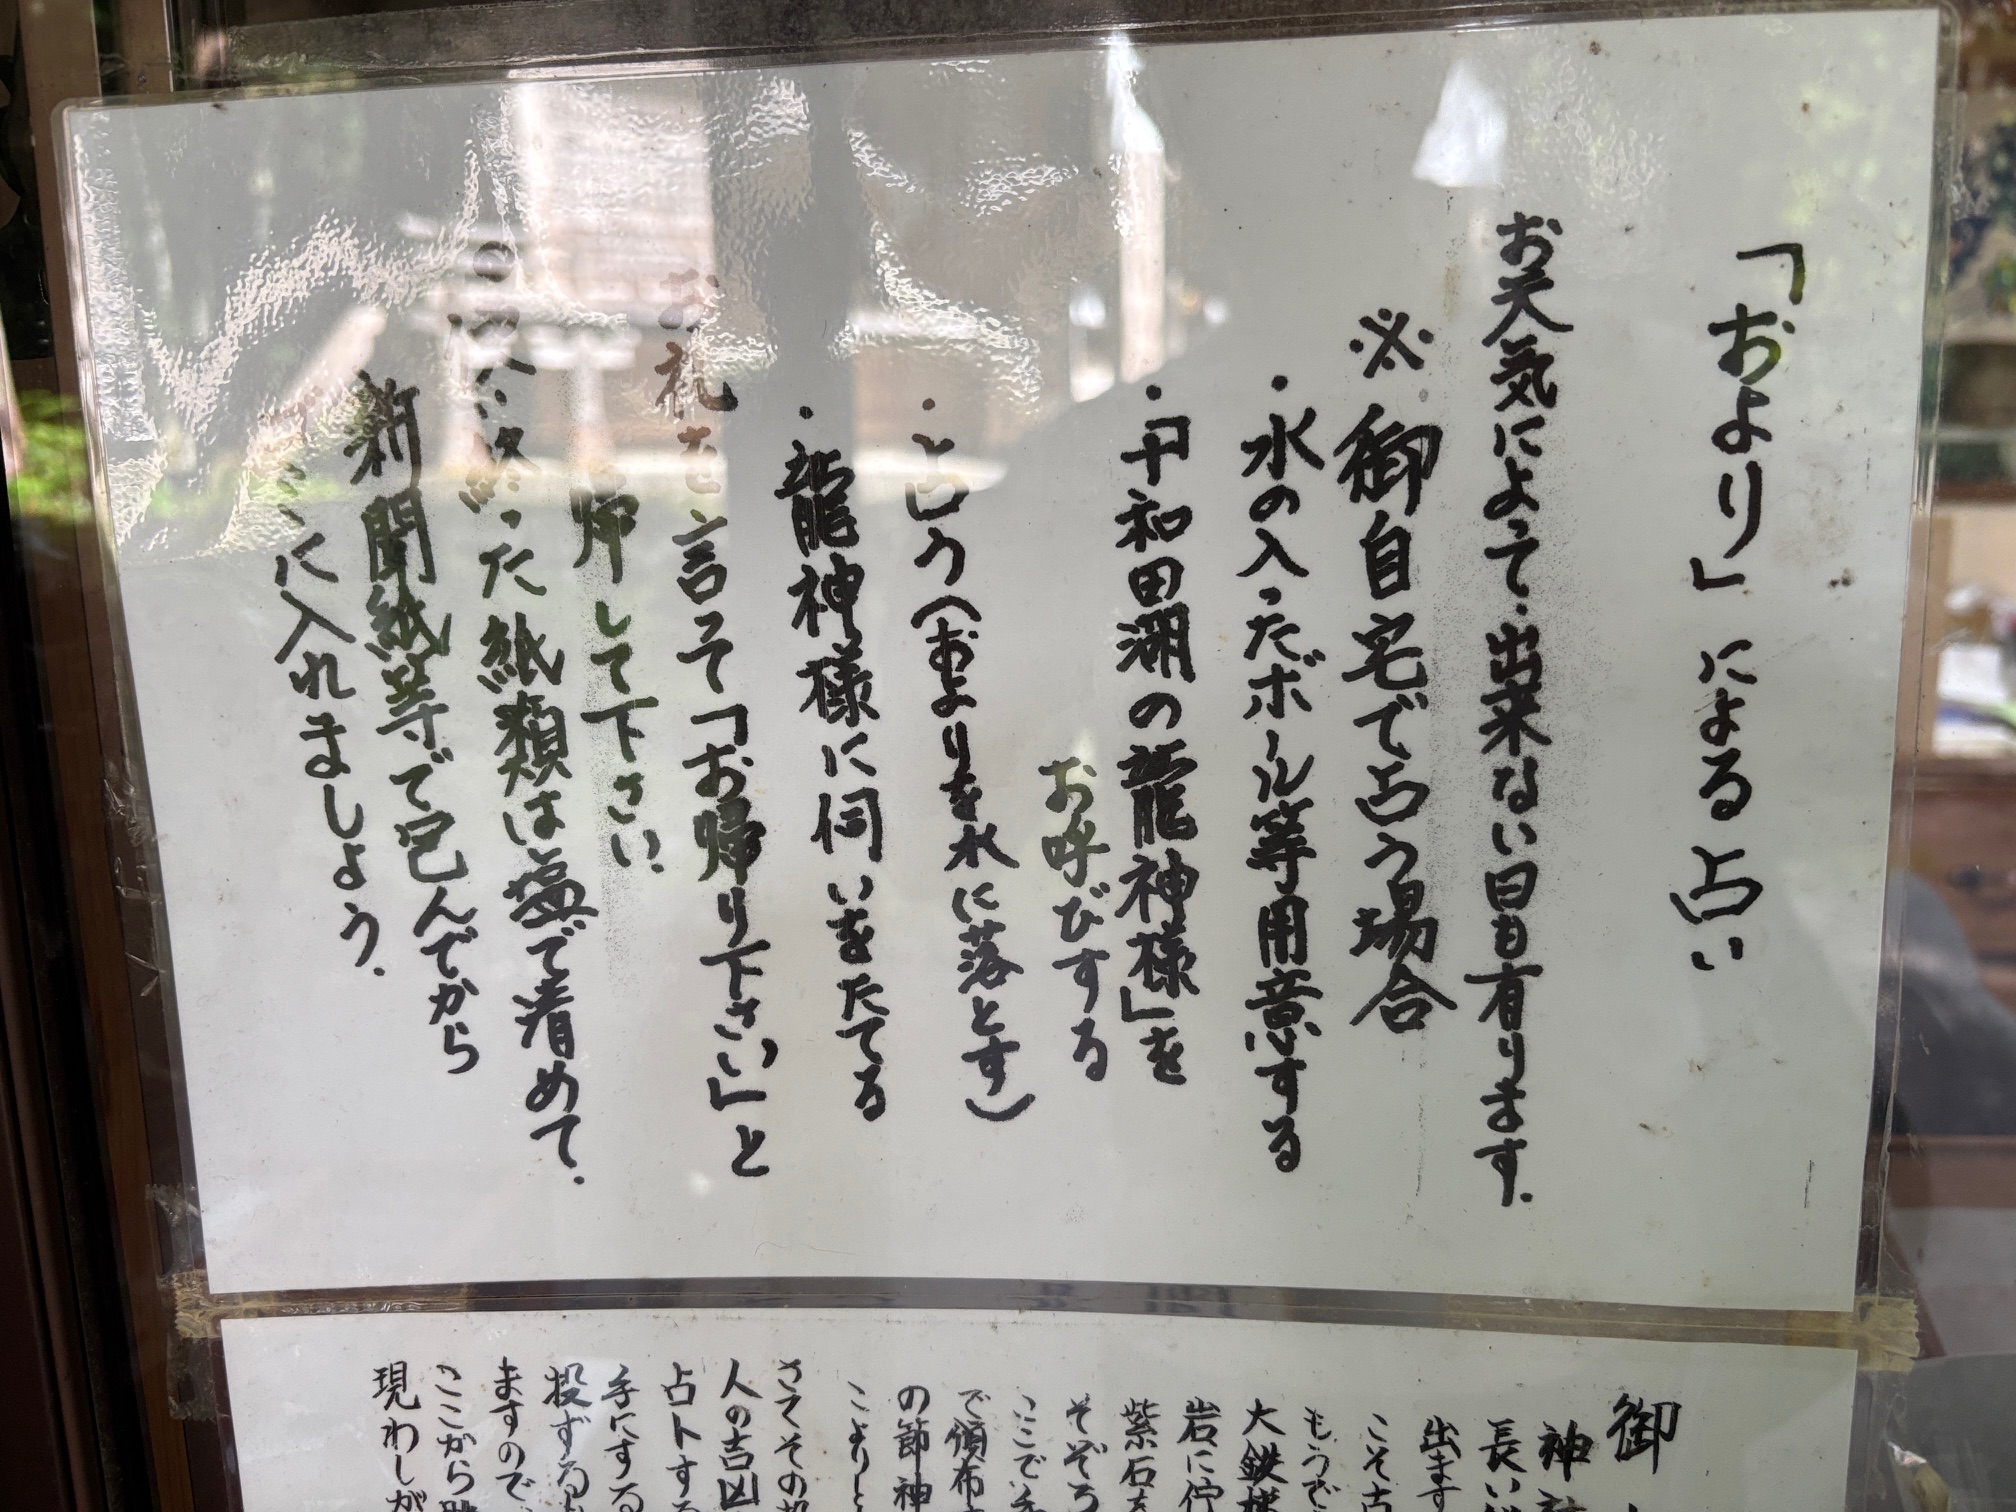 「およリ」による占い
お天気によって・出来ない日も有ります.
※御自宅で占う場合
・水の入ったボール等用意する
・「十和田湖の龍神様」を
お呼びする
・占う(およりを水に落とす)
・龍神様に伺いをたてる
お礼を言って「お帰り下さい」と
帰して下さい.
終った紙類は塩で清めて.
新聞紙等で包んでから
ゴミに入れましょう.
御
神
長い
出ます
こそ古
もうで
大鉄様
岩に佇
紫石を
そぞろ
ここで
で頒布
の節神
こよりと
さてその
人の吉凶
占トする
手にする
投ずる
ますので
ここから
現わしが